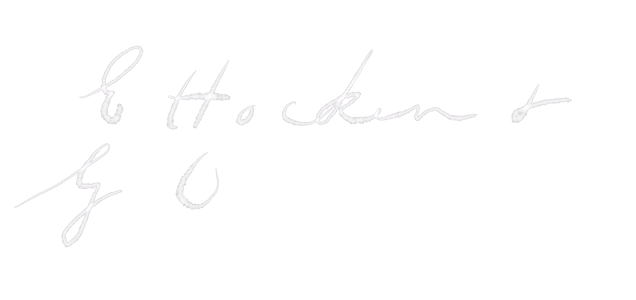 E Hocken &
G U